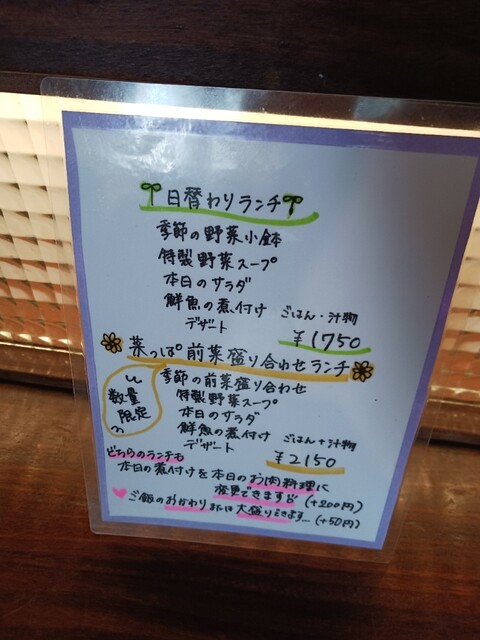 日替わりランチ
季節の野菜小鉢
特製野菜スープ
本日のサラダ
鮮魚の煮付け ごはん・汁物
デザート ¥1750
菜っぱ前菜盛り合わせランチ
数量限定
季節の前菜盛り合わせ
特製野菜スープ
本日のサラダ
鮮魚の煮付け ごはん+汁物
デザート ¥2150
どちらのランチも
本日の煮付けを本日のお肉料理に
変更できます (+200円)
ご飯のおかわりまたは大盛りできます…(+50円)